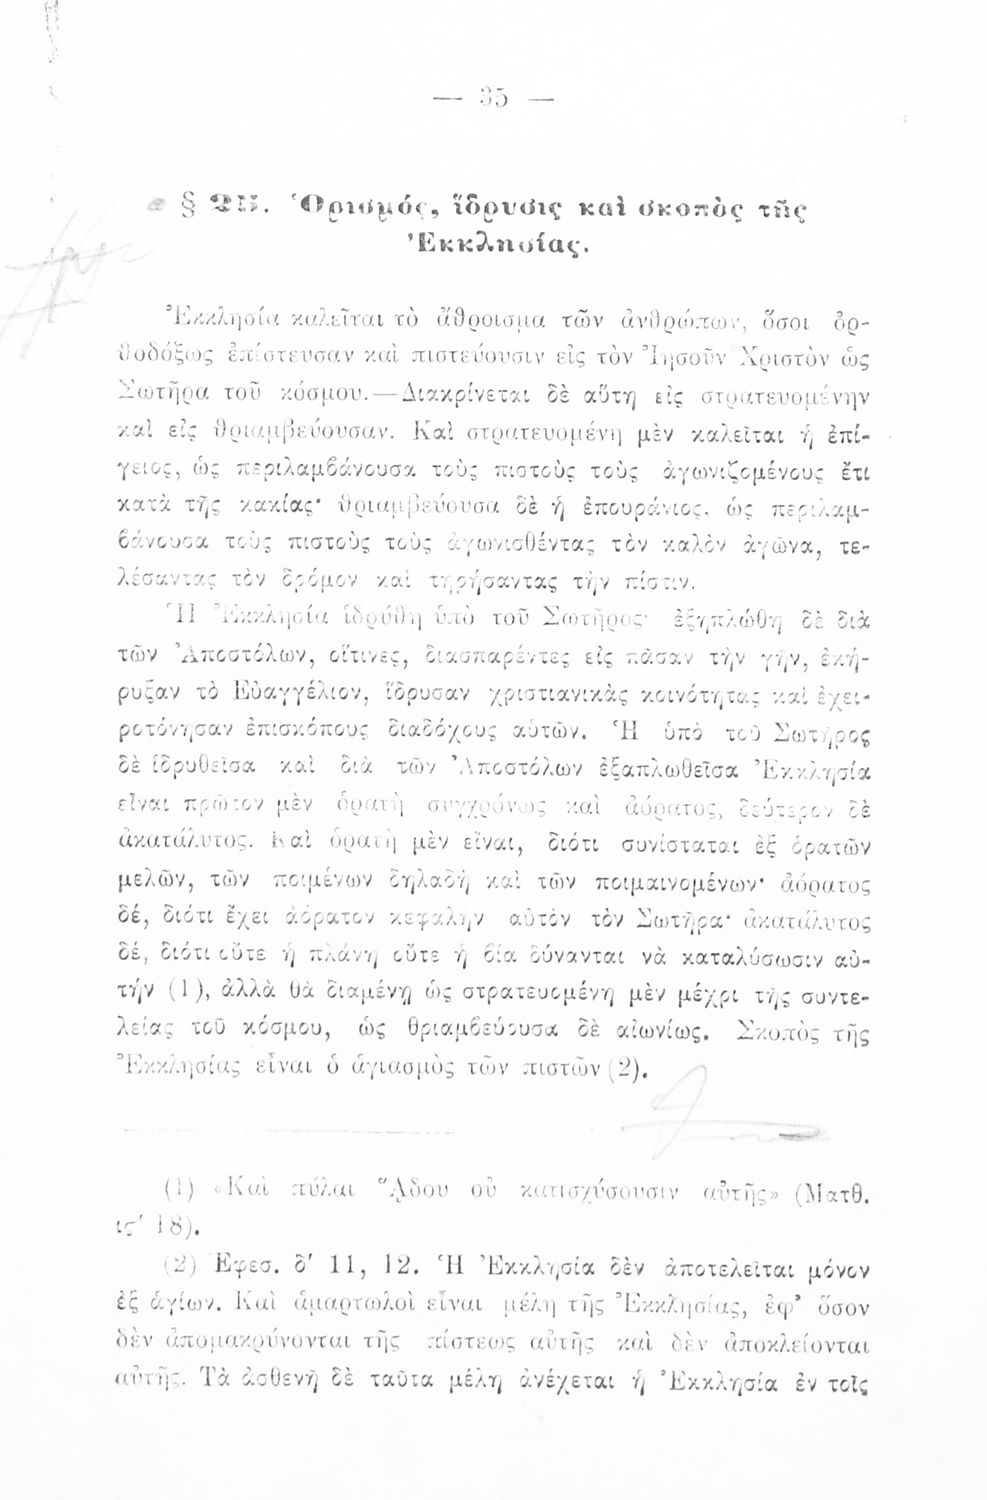 — 35 —
§ 25. Ὁρισμός, ἵδρυσις καὶ σκοπὸς τῆς
Ἐκκλησίας.
Ἐκκλησία καλεῖται τὸ ἄθροισμα τῶν ἀνθρώπων, ὅσοι ὀρ-
θοδόξως ἐπίστευσαν καὶ πιστεύουσιν εἰς τὸν Ἰησοῦν Χριστὸν ὡς
Σωτῆρα τοῦ κόσμου.—Διακρίνεται δὲ αὕτη εἰς στρατευομένην
καὶ εἰς θριαμβεύουσαν. Καὶ στρατευομένη μὲν καλεῖται ἡ ἐπί-
γειος, ὡς περιλαμβάνουσα τοὺς πιστοὺς τοὺς ἀγωνιζομένους ἔτι
κατὰ τῆς κακίας· θριαμβεύουσα δὲ ἡ ἐπουράνιος, ὡς περιλαμ-
βάνουσα τοὺς πιστοὺς τοὺς ἀγωνισθέντας τὸν καλὸν ἀγῶνα, τε-
λέσαντας τὸν δρόμον καὶ τηρήσαντας τὴν πίστιν.
Ἡ Ἐκκλησία ἱδρύθη ὑπὸ τοῦ Σωτῆρος· ἐξηπλώθη δὲ διὰ
τῶν Ἀποστόλων, οἵτινες, διασπαρέντες εἰς πᾶσαν τὴν γῆν, ἐκή-
ρυξαν τὸ Εὐαγγέλιον, ἵδρυσαν χριστιανικὰς κοινότητας καὶ ἐχει-
ροτόνησαν ἐπισκόπους διαδόχους αὑτῶν. Ἡ ὑπὸ τοῦ Σωτῆρος
δὲ ἱδρυθεῖσα καὶ διὰ τῶν Ἀποστόλων ἐξαπλωθεῖσα Ἐκκλησία
εἶναι πρῶτον μὲν ὁρατὴ συγχρόνως καὶ ἀόρατος, δεύτερον δὲ
ἀκατάλυτος. Καὶ ὁρατὴ μὲν εἶναι, διότι συνίσταται ἐξ ὁρατῶν
μελῶν, τῶν ποιμένων δηλαδὴ καὶ τῶν ποιμαινομένων· ἀόρατος
δέ, διότι ἔχει ἀόρατον κεφαλὴν αὐτὸν τὸν Σωτῆρα· ἀκατάλυτος
δέ, διότι οὔτε ἡ πλάνη οὔτε ἡ βία δύνανται νὰ καταλύσωσιν αὐ-
τήν (1), ἀλλὰ θὰ διαμένῃ ὡς στρατευομένη μὲν μέχρι τῆς συντε-
λείας τοῦ κόσμου, ὡς θριαμβεύουσα δὲ αἰωνίως. Σκοπὸς τῆς
Ἐκκλησίας εἶναι ὁ ἁγιασμὸς τῶν πιστῶν (2).
(1) «Καὶ πύλαι ᾍδου οὐ κατισχύσουσιν αὐτῆς» (Ματθ.
ις′ 18).
(2) Ἐφεσ. δ′ 11, 12. Ἡ Ἐκκλησία δὲν ἀποτελεῖται μόνον
ἐξ ἁγίων. Καὶ ἁμαρτωλοὶ εἶναι μέλη τῆς Ἐκκλησίας, ἐφ’ ὅσον
δὲν ἀπομακρύνονται τῆς πίστεως αὐτῆς καὶ δὲν ἀποκλείονται
αὐτῆς. Τὰ ἀσθενῆ δὲ ταῦτα μέλη ἀνέχεται ἡ Ἐκκλησία ἐν τοῖς